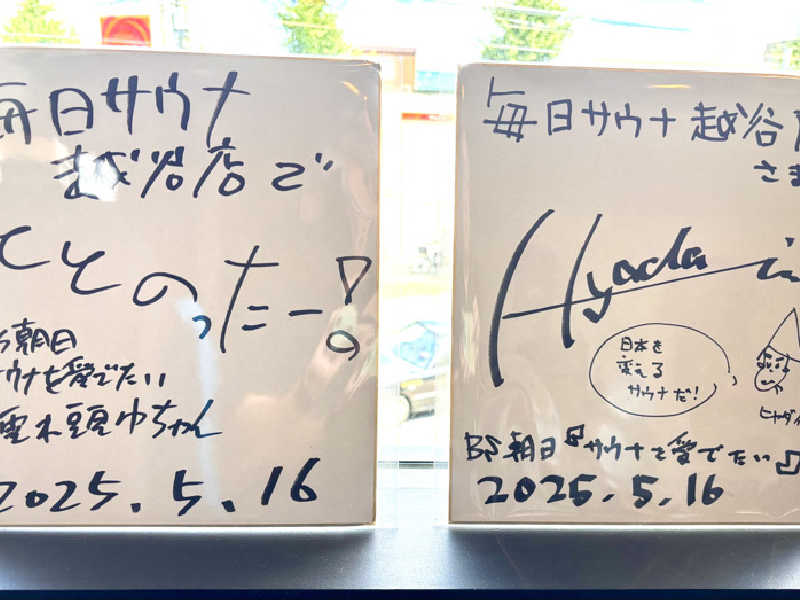 毎日サウナ
越谷店で
ととのったー!
朝日
サウナを愛でたい
ちゃん
2025.5.16
毎日サウナ越谷店
さま
Hyada
日本を
変える
サウナだ!
ヒャダ
BS朝日『サウナを愛でたい』
2025.5.16